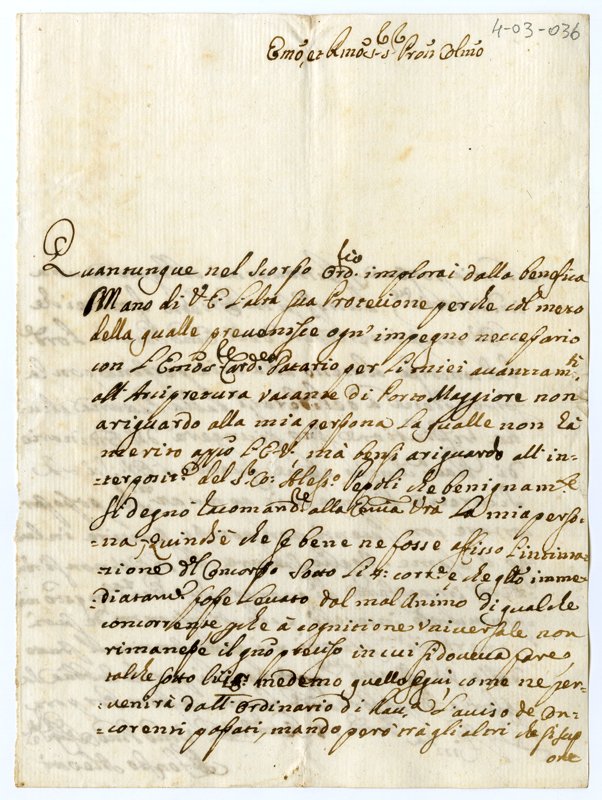 4-03-036
Emo, et Rmo Sig. Sig. Pron Colmo
Quantunque nel scorso Ordrio. implorai dalla benefica
Mano di V. E. l'alta sua Protetione perche col mezo
della qualle prevenisce ogn' impegno neccessario
con l'Emo Sig. Card. Datario per li miei avanzamti
all' Arcipretura vacante di Porto Maggiore non
ariguardo alla mia persona la qualle non hà
merito apso l'E. V., mà bensi ariguardo all' in-
-terposit. del Sr. Co: Aless. Pepoli che benignamte
si degnò racomand. alla Emza Vra la mia perso-
-na, Quindi è che se bene ne fosse affisso l'intima-
-tione del Concorso sotto li 4: corrte e che qto imme-
-diatamte fosse levato dal mal Animo di qualche
concorrente pche à cognitione Universale non
rimanesse il gno preciso in cui si doveva fare
talche sotto li medemo quello segui come ne per-
-venirà dall' Ordinario di l'aviso de Con-
-correnti passati, mando però trà gli altri che si sup
one